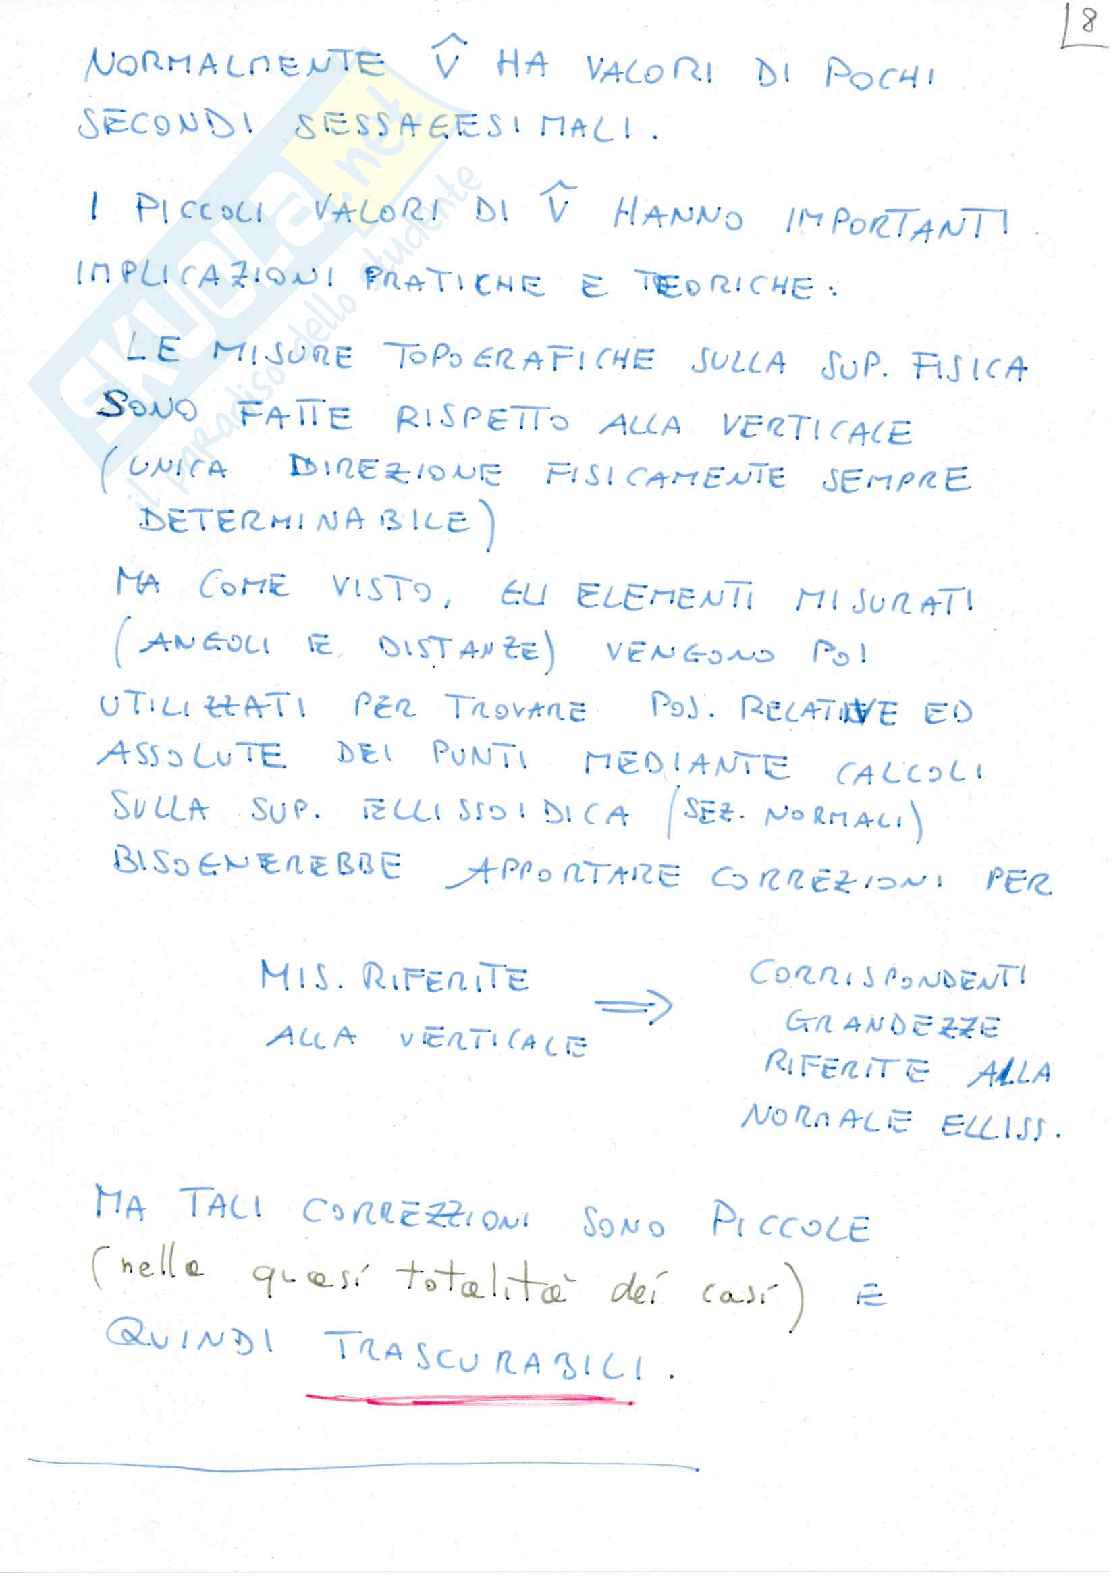 8
NORMALMENTE V̂ HA VALORI DI POCHI
SECONDI SESSAGESIMALI.
I PICCOLI VALORI DI V̂ HANNO IMPORTANTI
IMPLICAZIONI PRATICHE E TEORICHE.
LE MISURE TOPOGRAFICHE SULLA SUP. FISICA
SONO FATTE RISPETTO ALLA VERTICALE
(UNICA DIREZIONE FISICAMENTE SEMPRE
DETERMINABILE)
MA COME VISTO, GLI ELEMENTI MISURATI
(ANGOLI E DISTANZE) VENGONO POI
UTILIZZATI PER TROVARE POS. RELATIVE ED
ASSOLUTE DEI PUNTI MEDIANTE CALCOLI
SULLA SUP. ELLISSOIDICA (SEZ. NORMALI)
BISOGNEREBBE APPORTARE CORREZIONI PER
MIS. RIFERITE
ALLA VERTICALE
⇒
CORRISPONDENTI
GRANDEZZE
RIFERITE ALLA
NORMALE ELLISS.
MA TALI CORREZZIONI SONO PICCOLE
(nella quasi totalità dei casi) E
QUINDI TRASCURABILI.
SKUOLA.net
il paradiso dello studente